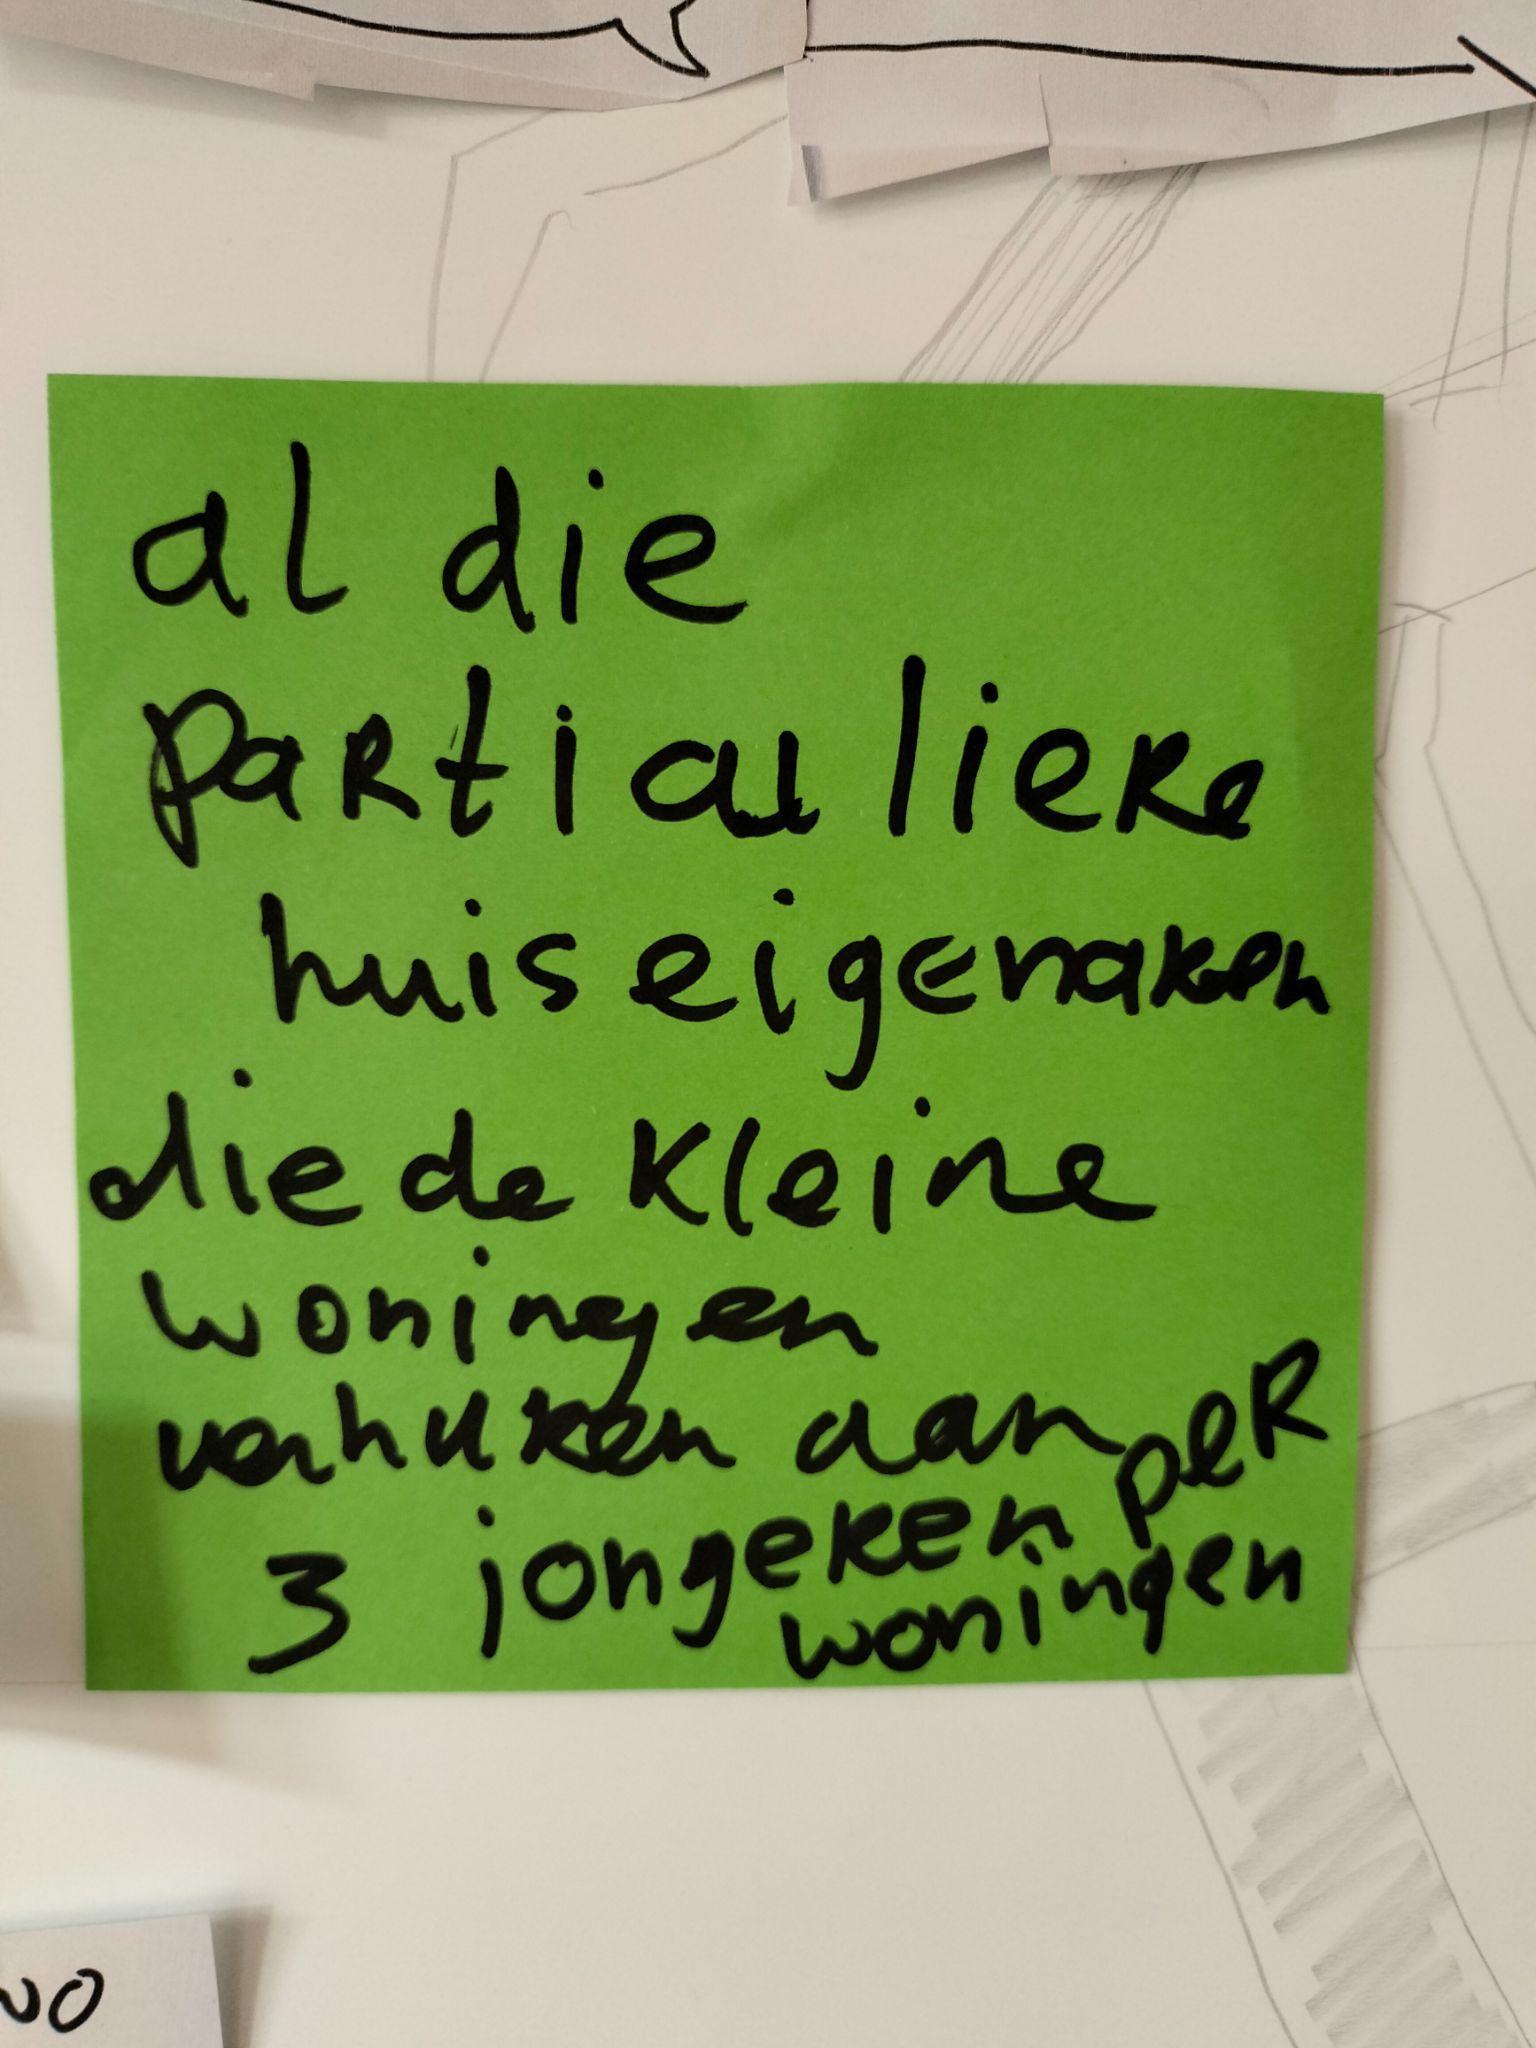 al die
particuliere
huiseigenaren
die de kleine
woningen
verhuren aan per
3 jongeren
woningen